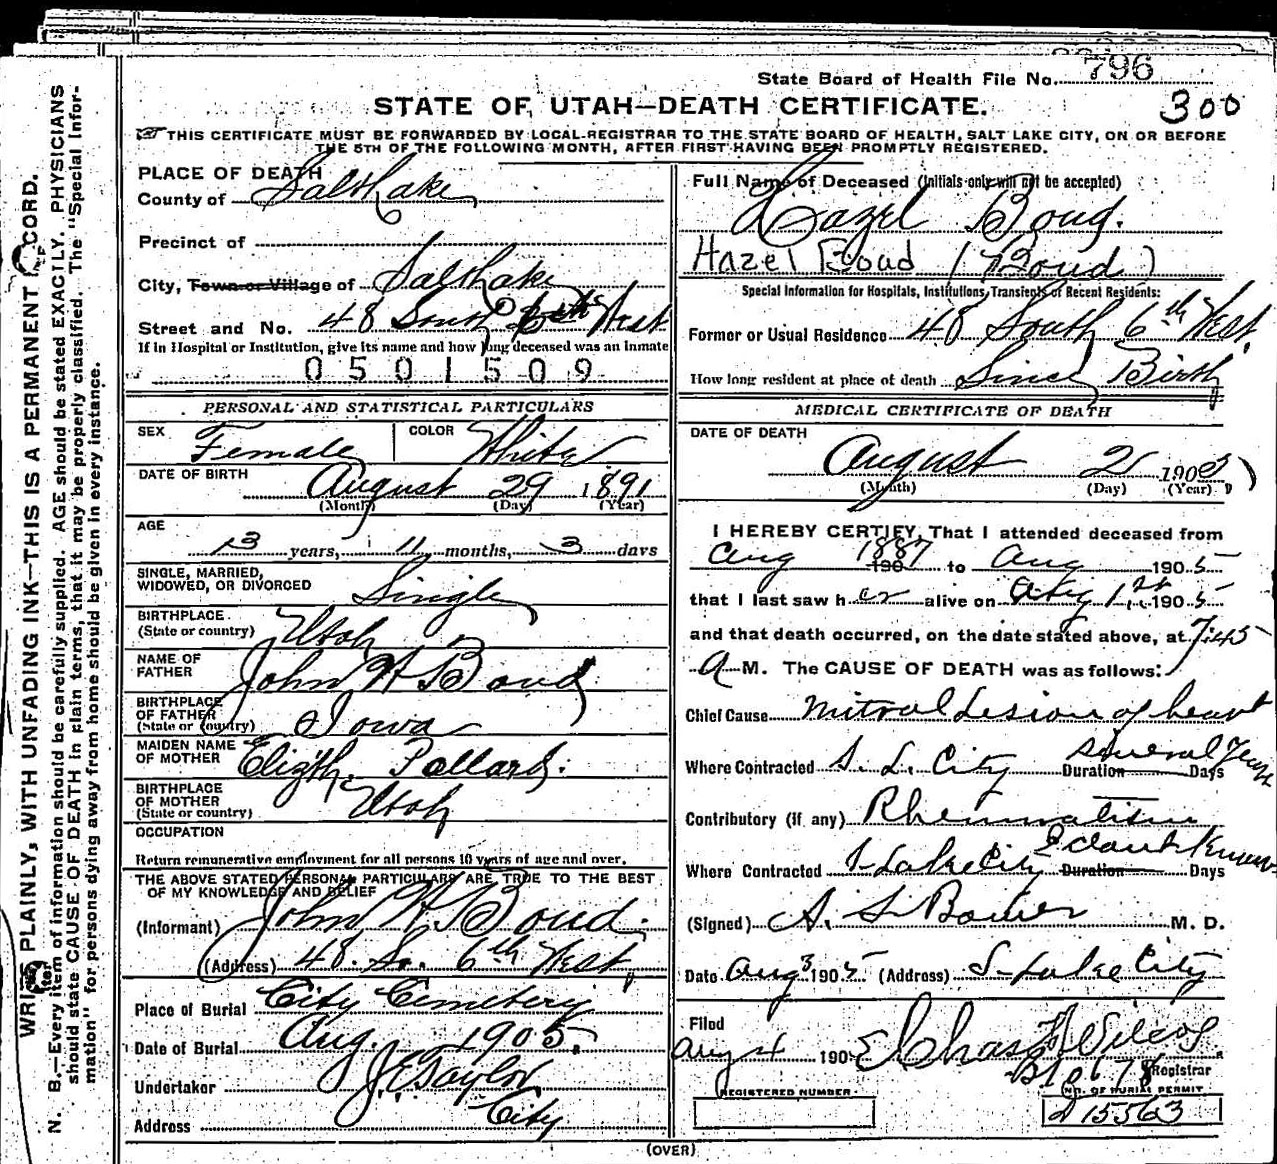 State Board of Health File No. 796
300
STATE OF UTAH—DEATH CERTIFICATE.
THIS CERTIFICATE MUST BE FORWARDED BY LOCAL REGISTRAR TO THE STATE BOARD OF HEALTH, SALT LAKE CITY, ON OR BEFORE
THE 5TH OF THE FOLLOWING MONTH, AFTER FIRST HAVING BEEN PROMPTLY REGISTERED.
WRITE PLAINLY, WITH UNFADING INK—THIS IS A PERMANENT RECORD.
N. B.—Every item of information should be carefully supplied. AGE should be stated EXACTLY. PHYSICIANS
should state CAUSE OF DEATH in plain terms, that it may be properly classified. The "Special Infor-
mation" for persons dying away from home should be given in every instance.
PLACE OF DEATH
County of Salt Lake
Precinct of
City, Town or Village of Salt Lake
Street and No. 48 South 6th West
If in Hospital or Institution, give its name and how long deceased was an inmate
0501509
PERSONAL AND STATISTICAL PARTICULARS
SEX Female COLOR White
DATE OF BIRTH August 29 1891
(Month) (Day) (Year)
AGE
13 years, 11 months, 3 days
SINGLE, MARRIED,
WIDOWED, OR DIVORCED Single
BIRTHPLACE
(State or country) Utah
NAME OF
FATHER John W Boud
BIRTHPLACE
OF FATHER
(State or country) Iowa
MAIDEN NAME
OF MOTHER Elizth. Pollard.
BIRTHPLACE
OF MOTHER
(State or country) Utah
OCCUPATION
Return remunerative employment for all persons 10 years of age and over.
THE ABOVE STATED PERSONAL PARTICULARS ARE TRUE TO THE BEST
OF MY KNOWLEDGE AND BELIEF
(Informant) John W Boud.
(Address) 48. So. 6th West
Place of Burial City Cemetery
Date of Burial Aug. 1905.
Undertaker J E Taylor
Address City
Full Name of Deceased (Initials only will not be accepted)
Hazel Boug.
Hazel Boud (Boud)
Special Information for Hospitals, Institutions, Transients of Recent Residents:
Former or Usual Residence 48 South 6th West
How long resident at place of death Since Birth
MEDICAL CERTIFICATE OF DEATH
DATE OF DEATH
August 2 1905
(Month) (Day) (Year)
I HEREBY CERTIFY, That I attended deceased from
Aug 1887 190 to Aug 1905
that I last saw her alive on Aug 1st 1905
and that death occurred, on the date stated above, at 7:45
A M. The CAUSE OF DEATH was as follows:
Chief Cause Mitral Lesion of heart
Where Contracted S. L. City Duration Several Years Days
Contributory (if any) Rheumatism
Where Contracted S Lake City Duration I dont Know Days
(Signed) A. S. Bower M. D.
Date Aug 3 1905 (Address) S Lake City
Filed
Aug 4 190 Chas Wilcox
Registrar
REGISTERED NUMBER
NO. OF BURIAL PERMIT
15563
(OVER)